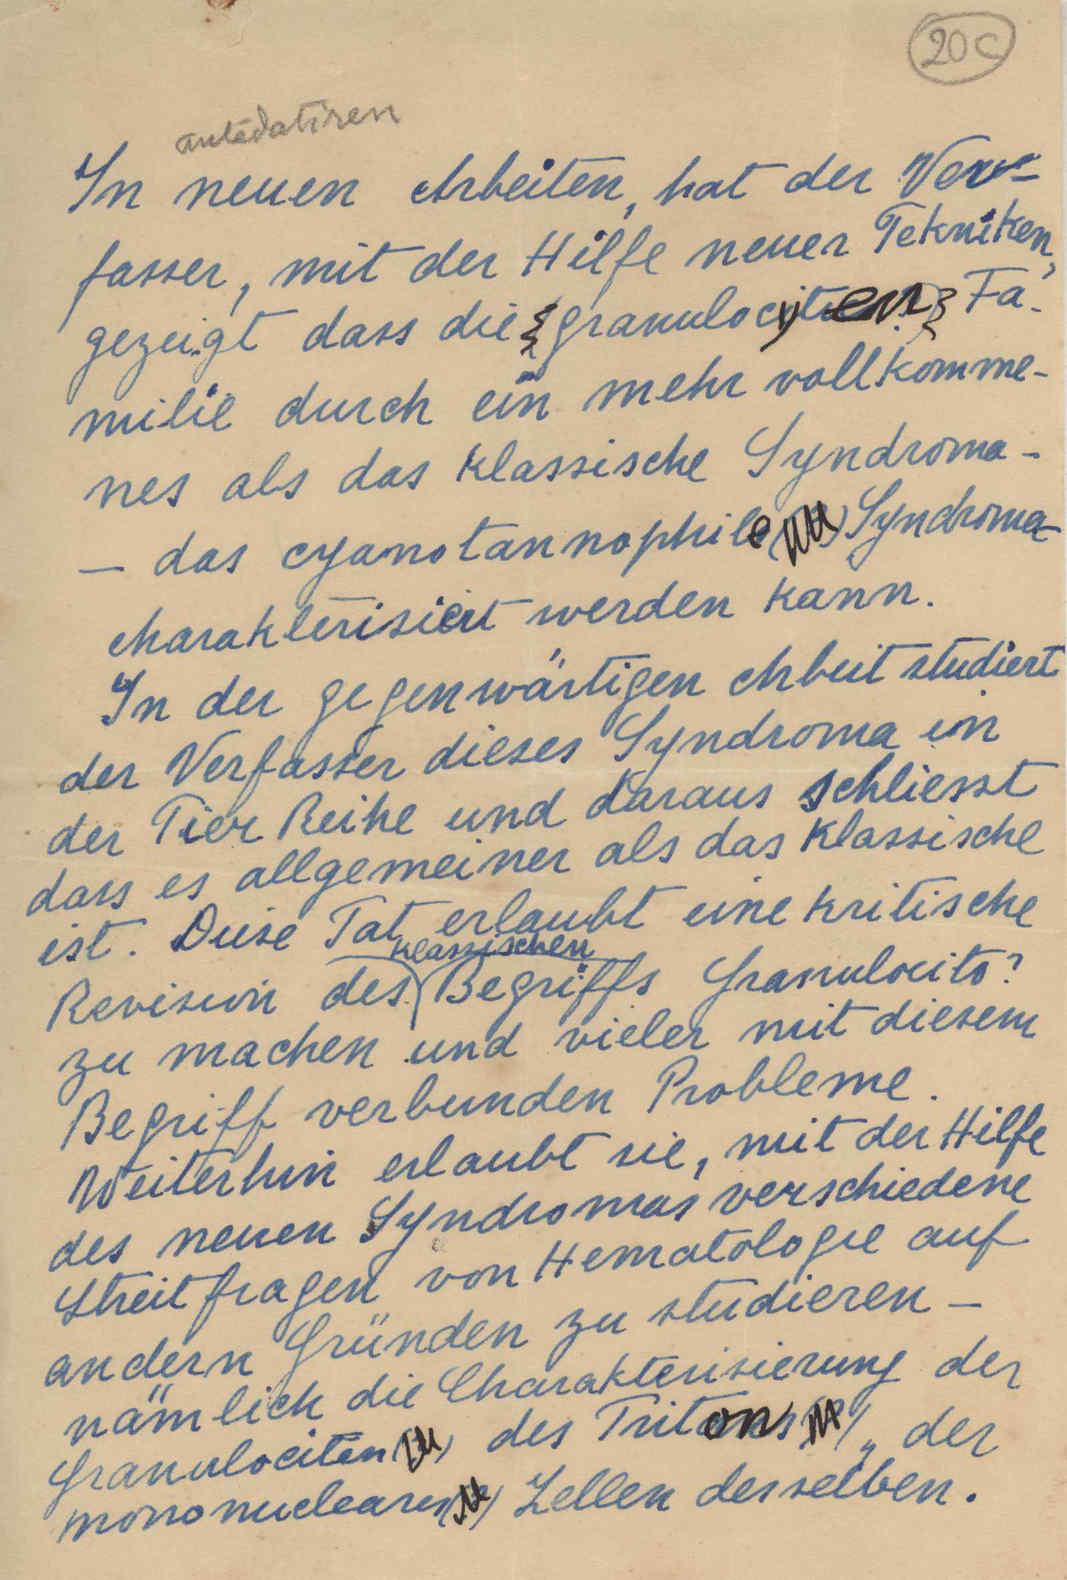 20c
antedatiren
In neuen Arbeiten, hat der Ver-
fasser, mit der Hilfe neuer Tekniken,
gezeigt dass die granulocyten Fa-
milie durch ein mehr vollkomme-
nes als das klassische Syndroma -
- das cyanotannophile Syndroma -
charakterisiert werden kann.
In der gegenwärtigen Arbeit studiert
der Verfasser dieses Syndroma in
der Tier Reihe und daraus schliesst
dass es allgemeiner als das klassische
ist. Diese Tat erlaubt eine kritische
klassischen
Revision des Begriffs Granulocito?
zu machen und vieler mit diesem
Begriff verbunden Probleme.
Weiterhin erlaubt sie, mit der Hilfe
des neuen Syndromas verschiedene
Streitfragen von Hematologie auf
andern Gründen zu studieren -
nämlich die Charakterisierung der
Granulociten des Tritons, der
mononuclearen Zellen desselben.